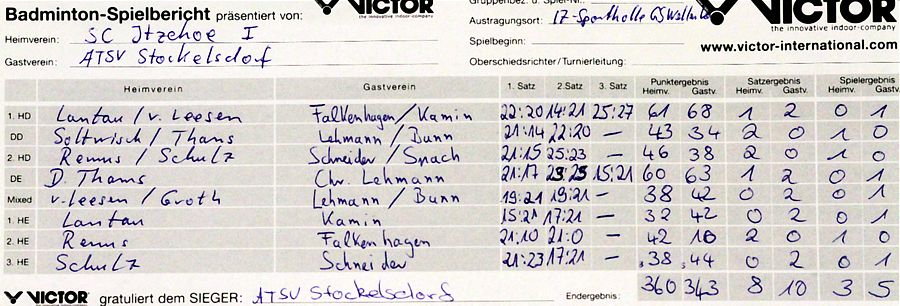 Badminton-Spielbericht präsentiert von: VICTOR
the innovative indoor-company
Heimverein: SC Itzehoe I
Gastverein: ATSV Stockelsdorf
Austragungsort:
VICTOR
the innovative indoor-company
Spielbeginn:
www.victor-international.com
Oberschiedsrichter/Turnierleitung:
Heimverein Gastverein 1. Satz 2. Satz 3. Satz Punktergebnis Heimv. Gastv. Satzergebnis Heimv. Gastv. Spielergebnis Heimv. Gastv.
1. HD Lantau / v. Leesen Falkenhagen / Kamin 22:20 14:21 25:27 61 68 1 2 0 1
DD Soltwisch / Thams Lehmann / Bunn 21:14 22:20 — 43 34 2 0 1 0
2. HD Remus / Schulz Schneider / Spach 21:15 25:23 — 46 38 2 0 1 0
DE D. Thams Chr. Lehmann 21:17 15:21 60 63 1 2 0 1
Mixed v. Leesen / Groth Lehmann / Bunn 19:21 19:21 — 38 42 0 2 0 1
1. HE Lantau Kamin 15:21 17:21 — 32 42 0 2 0 1
2. HE Remus Falkenhagen 21:10 21:0 — 42 10 2 0 1 0
3. HE Schulz Schneider 21:23 17:21 — 38 44 0 2 0 1
VICTOR gratuliert dem SIEGER: ATSV Stockelsdorf Endergebnis: 360 343 8 10 3 5